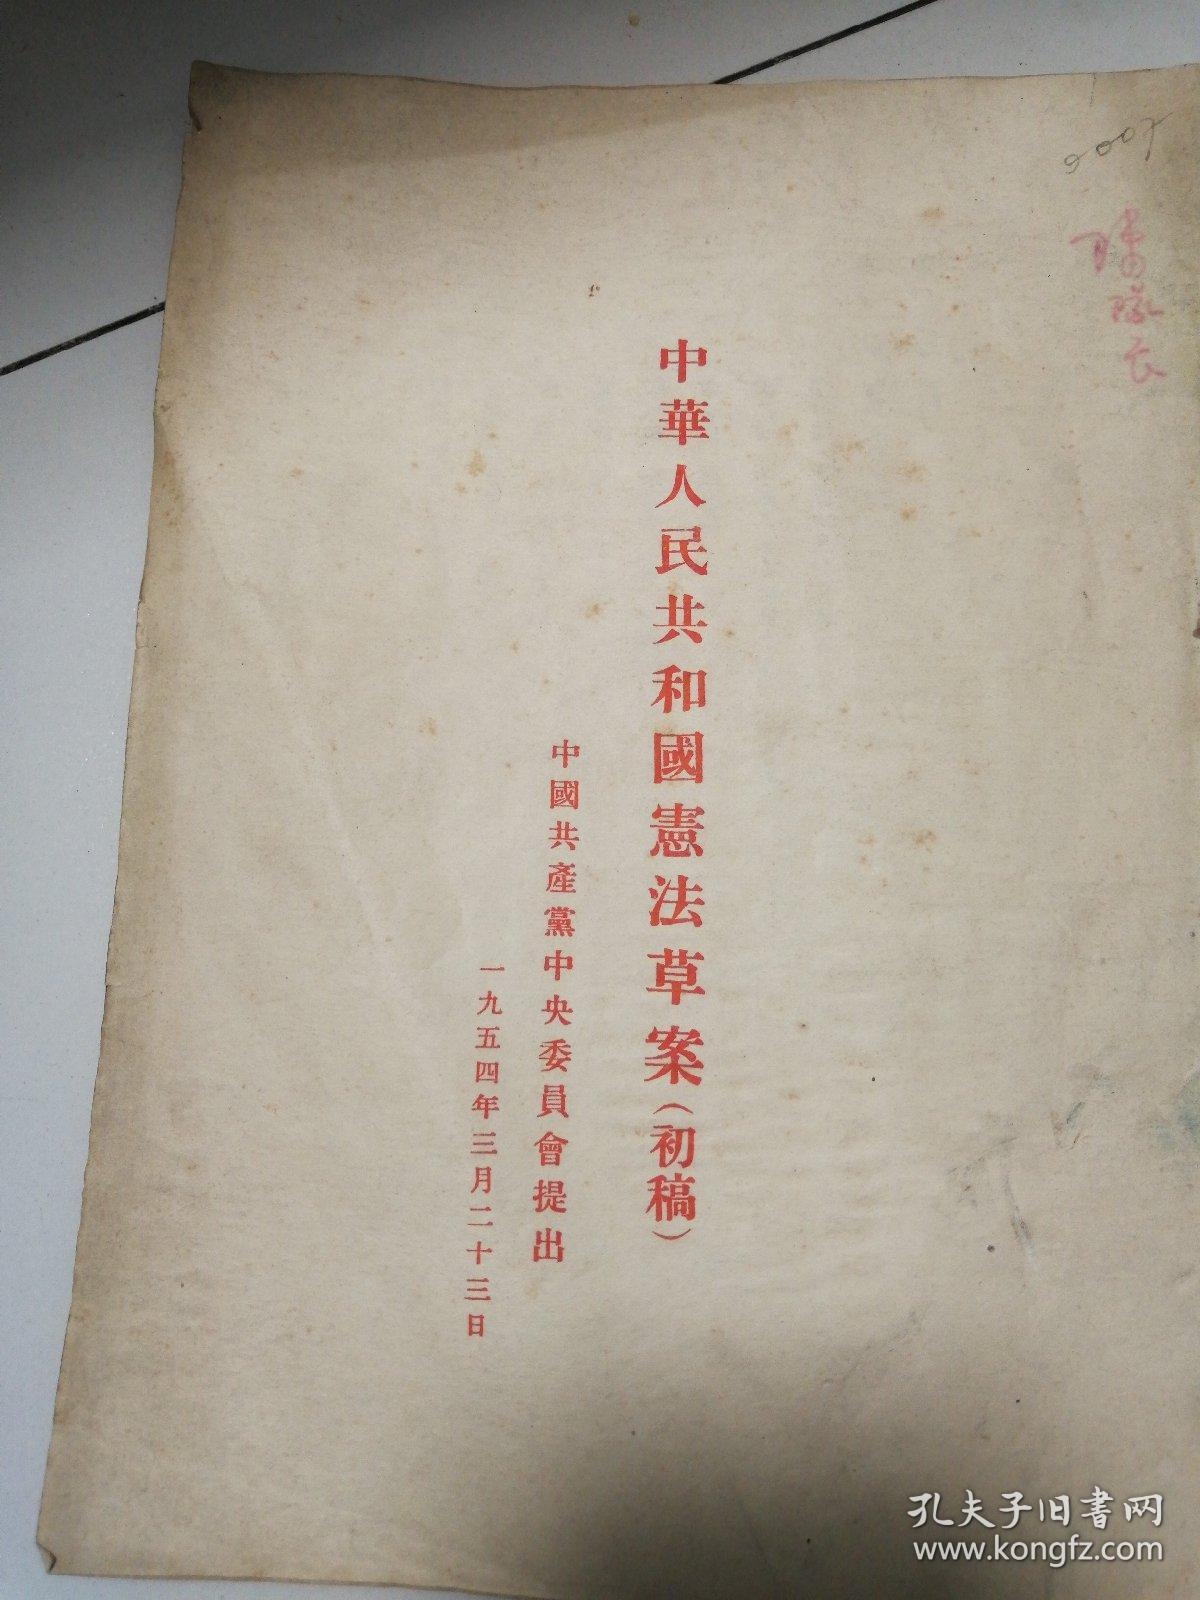 中華人民共和國憲法草案（初稿）
中國共產黨中央委員會提出
一九五四年三月二十三日
隊長
孔夫子旧书网
www.kongfz.com